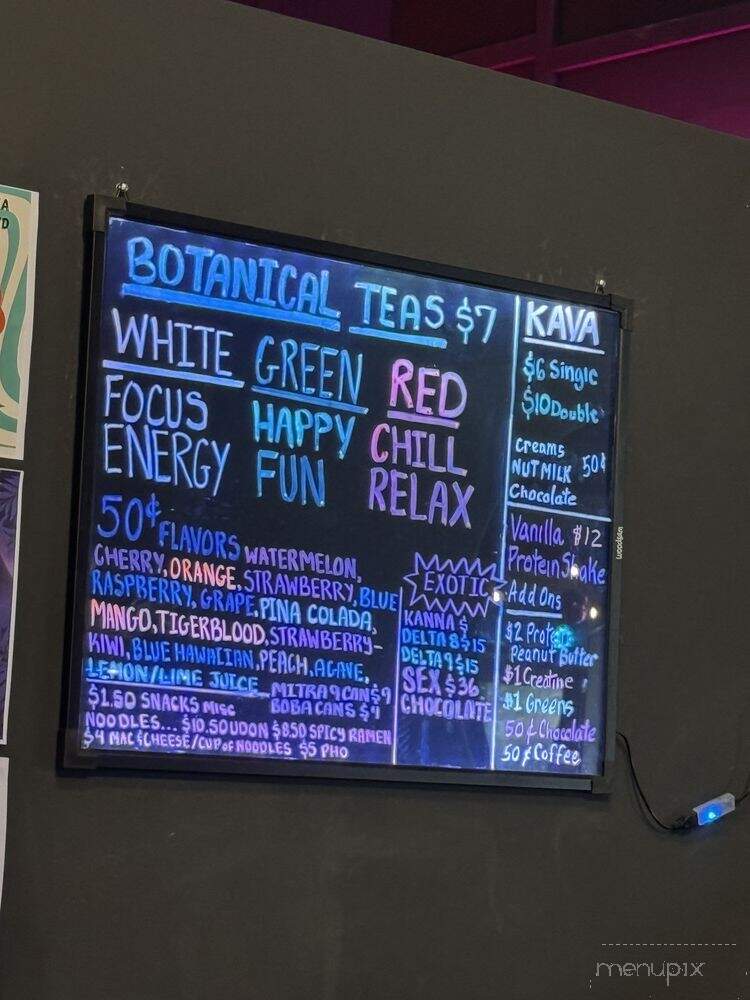 BOTANICAL TEAS $7
WHITE
FOCUS
ENERGY
GREEN
HAPPY
FUN
RED
CHILL
RELAX
50¢ FLAVORS WATERMELON,
CHERRY, ORANGE, STRAWBERRY, BLUE
RASPBERRY, GRAPE, PINA COLADA,
MANGO, TIGERBLOOD, STRAWBERRY-
KIWI, BLUE HAWAIIAN, PEACH, AGAVE,
LEMON/LIME JUICE
MITRA 9 CAN $9
BOBA CANS $4
$1.50 SNACKS MISC
NOODLES... $10.50 UDON $8.50 SPICY RAMEN
$4 MAC & CHEESE/CUP OF NOODLES $5 PHO
EXOTIC
KANNA $
DELTA 8 $15
DELTA 9 $15
SEX $36
CHOCOLATE
KAVA
$6 Single
$10 Double
Creams
NUTMILK 50¢
Chocolate
Vanilla $12
Protein Shake
Add Ons
$2 Protein
Peanut Butter
$1 Creatine
$1 Greens
50¢ Chocolate
50¢ Coffee
woodsam
A
D
menupix